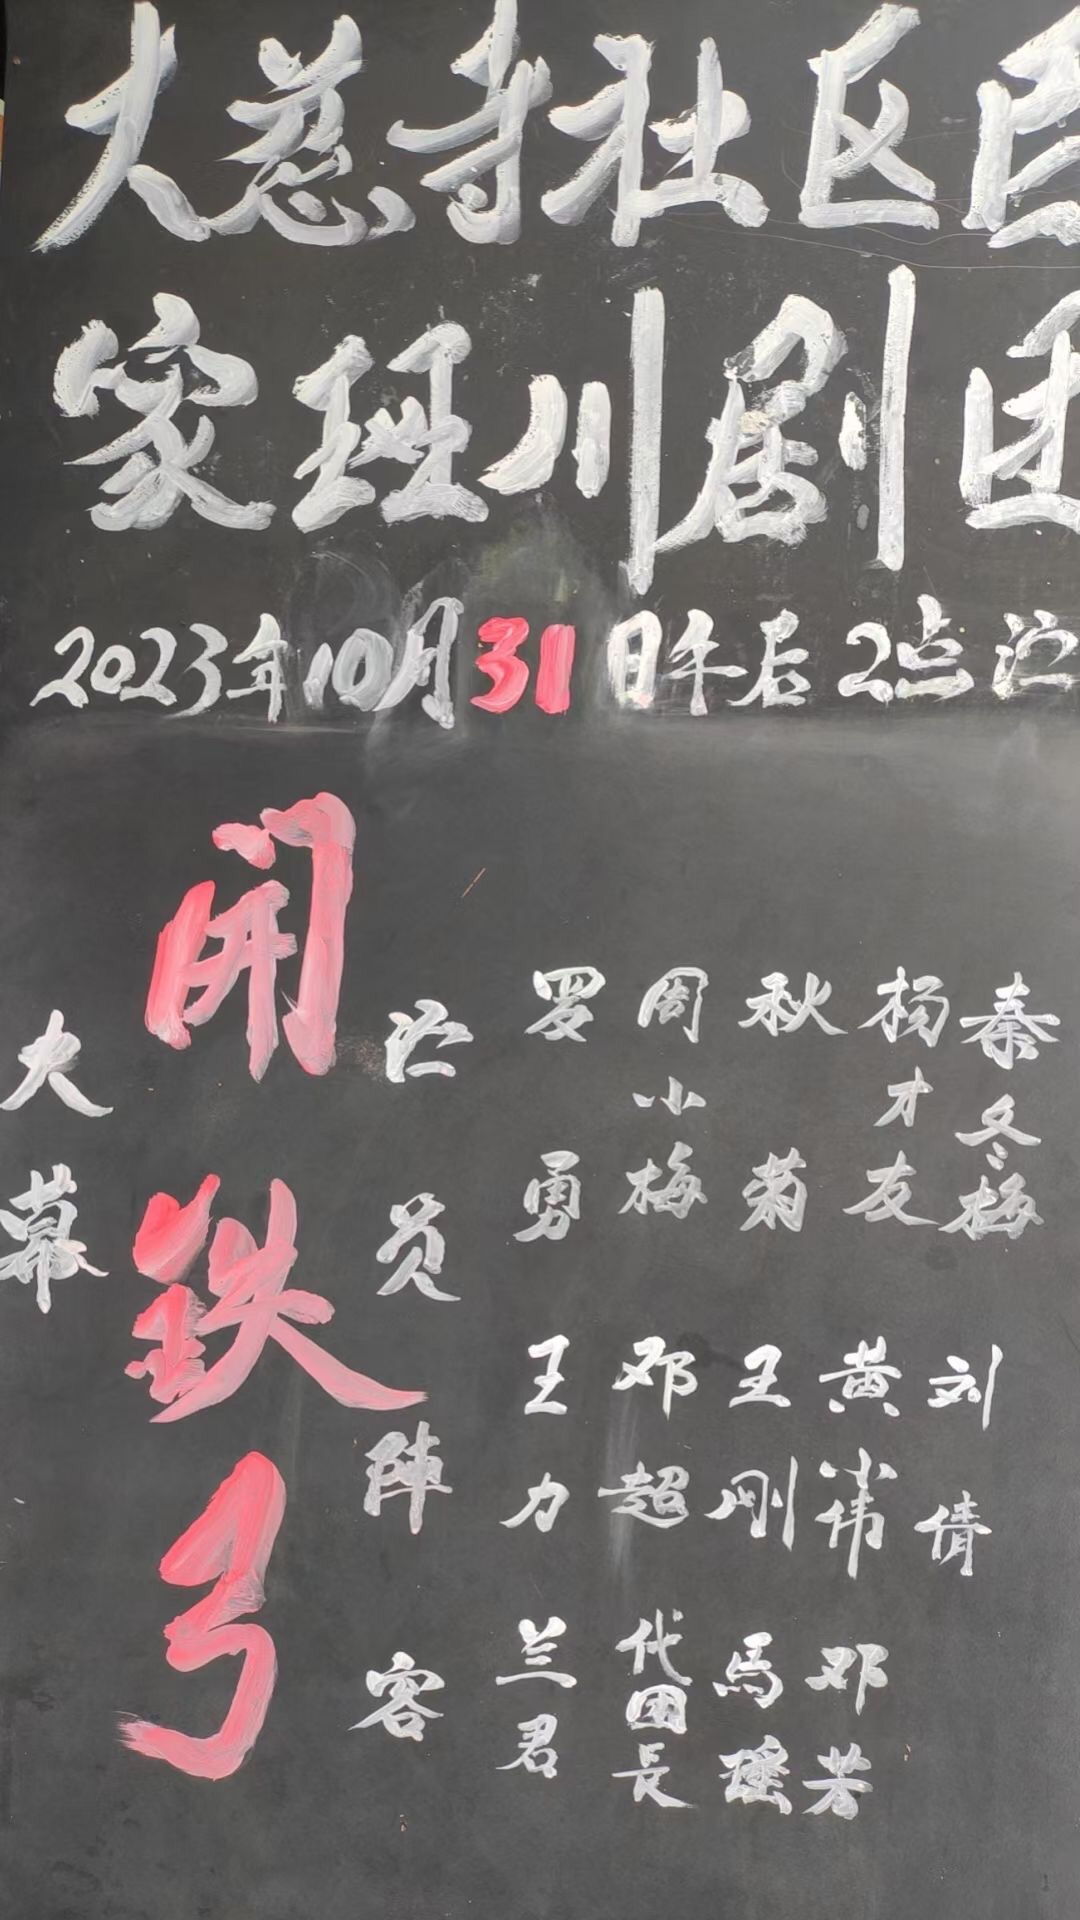 大慈寺社区
家班川剧团
2023年10月31日午后2点
大幕
開鉄弓
演员阵容
罗勇 周小梅 秋菊 杨才友 秦冬梅
王力 邓超 王刚 黄小伟 刘倩
兰君 代团長 馬瑶 邓芳